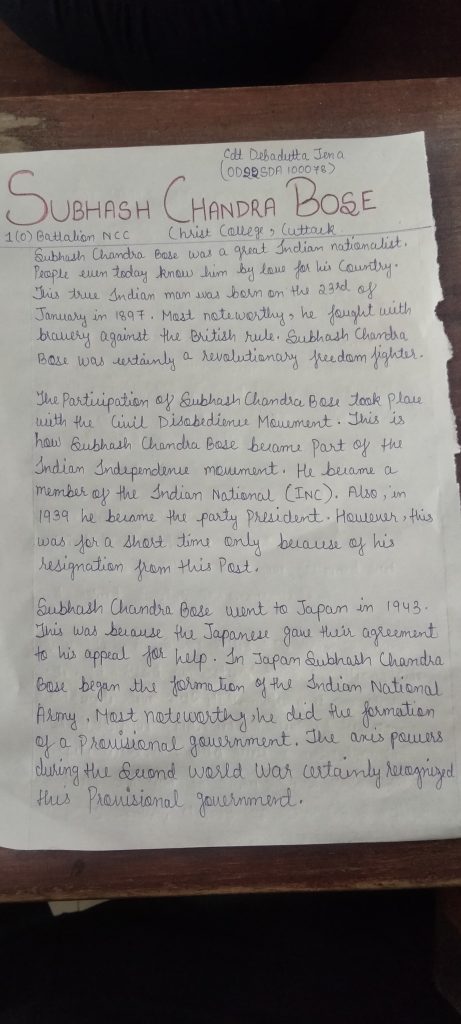 Cdt Debadutta Jena
(OD22SDA100078)
SUBHASH CHANDRA BOSE
1(O) Battalion NCC Christ College, Cuttack
Subhash Chandra Bose was a great Indian nationalist.
People even today know him by love for his Country.
This true Indian man was born on the 23rd of
January in 1897. Most noteworthy, he fought with
bravery against the British rule. Subhash Chandra
Bose was certainly a revolutionary freedom fighter.
The Participation of Subhash Chandra Bose took Place
with the Civil Disobedience Movement. This is
how Subhash Chandra Bose became Part of the
Indian Independence movement. He became a
member of the Indian National (INC). Also, in
1939 he became the party President. However, this
was for a short time only because of his
resignation from this Post.
Subhash Chandra Bose went to Japan in 1943.
This was because the Japanese gave their agreement
to his appeal for help. In Japan Subhash Chandra
Bose began the formation of the Indian National
Army. Most noteworthy, he did the formation
of a Provisional government. The axis powers
during the Second world War certainly recognized
this Provisional government.